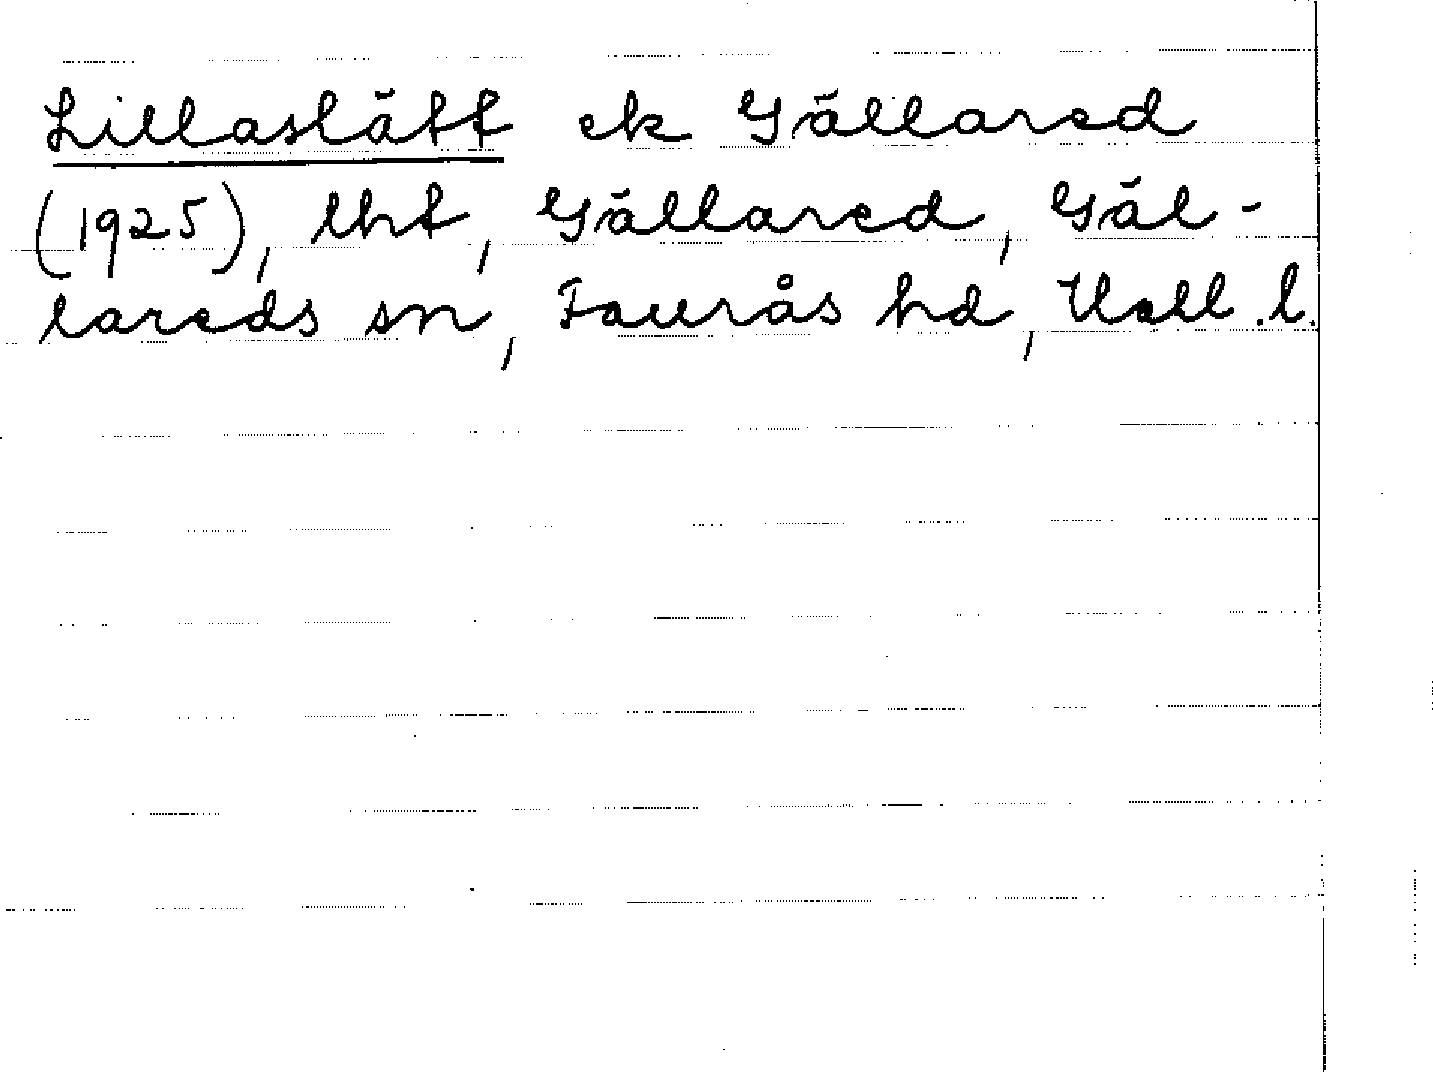 Lillaslätt ek Gällared
(1925), lht, Gällared, Gäl-
lareds sn, Faurås hd, Hall.l.